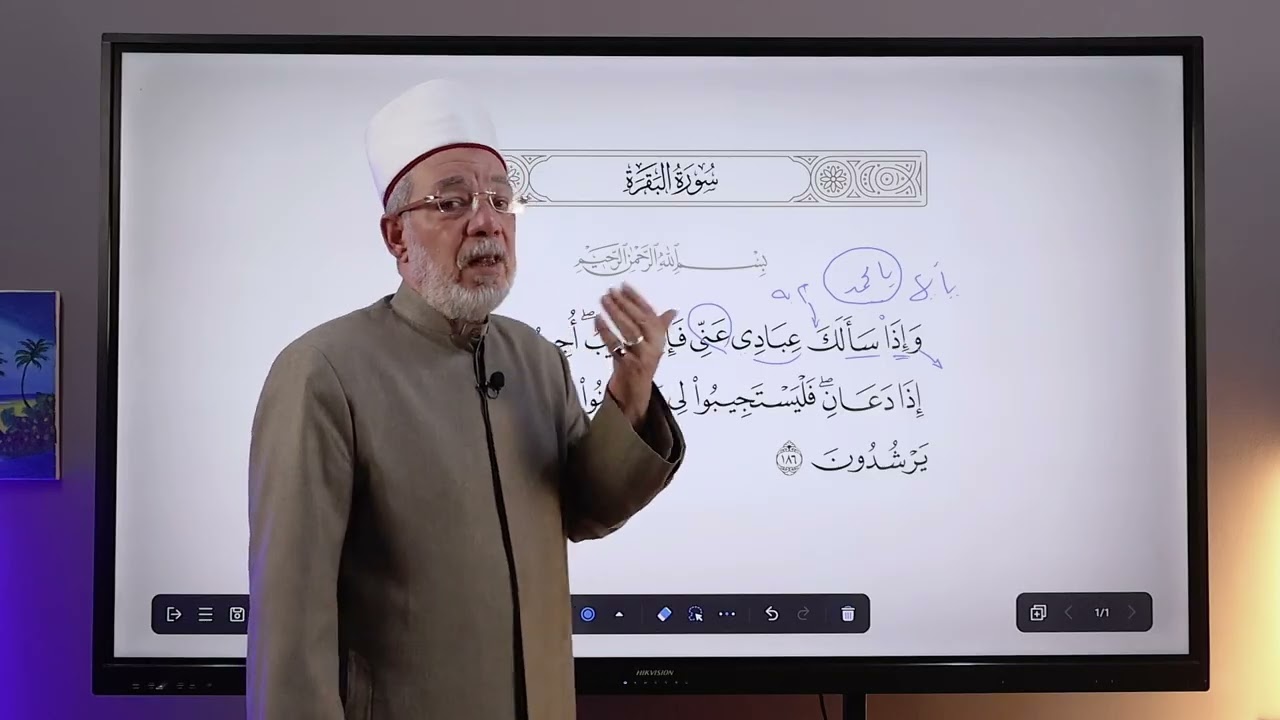 سُورَةُ البَقَرَةِ
بِسْمِ ٱللَّهِ ٱلرَّحْمَٰنِ ٱلرَّحِيمِ
يا محمد
وَإِذَا سَأَلَكَ عِبَادِى عَنِّى
إِذَا دَعَانِ ۖ فَلْيَسْتَجِيبُوا۟ لِى
يَرْشُدُونَ ١٨٦
1/1
HIKVISION